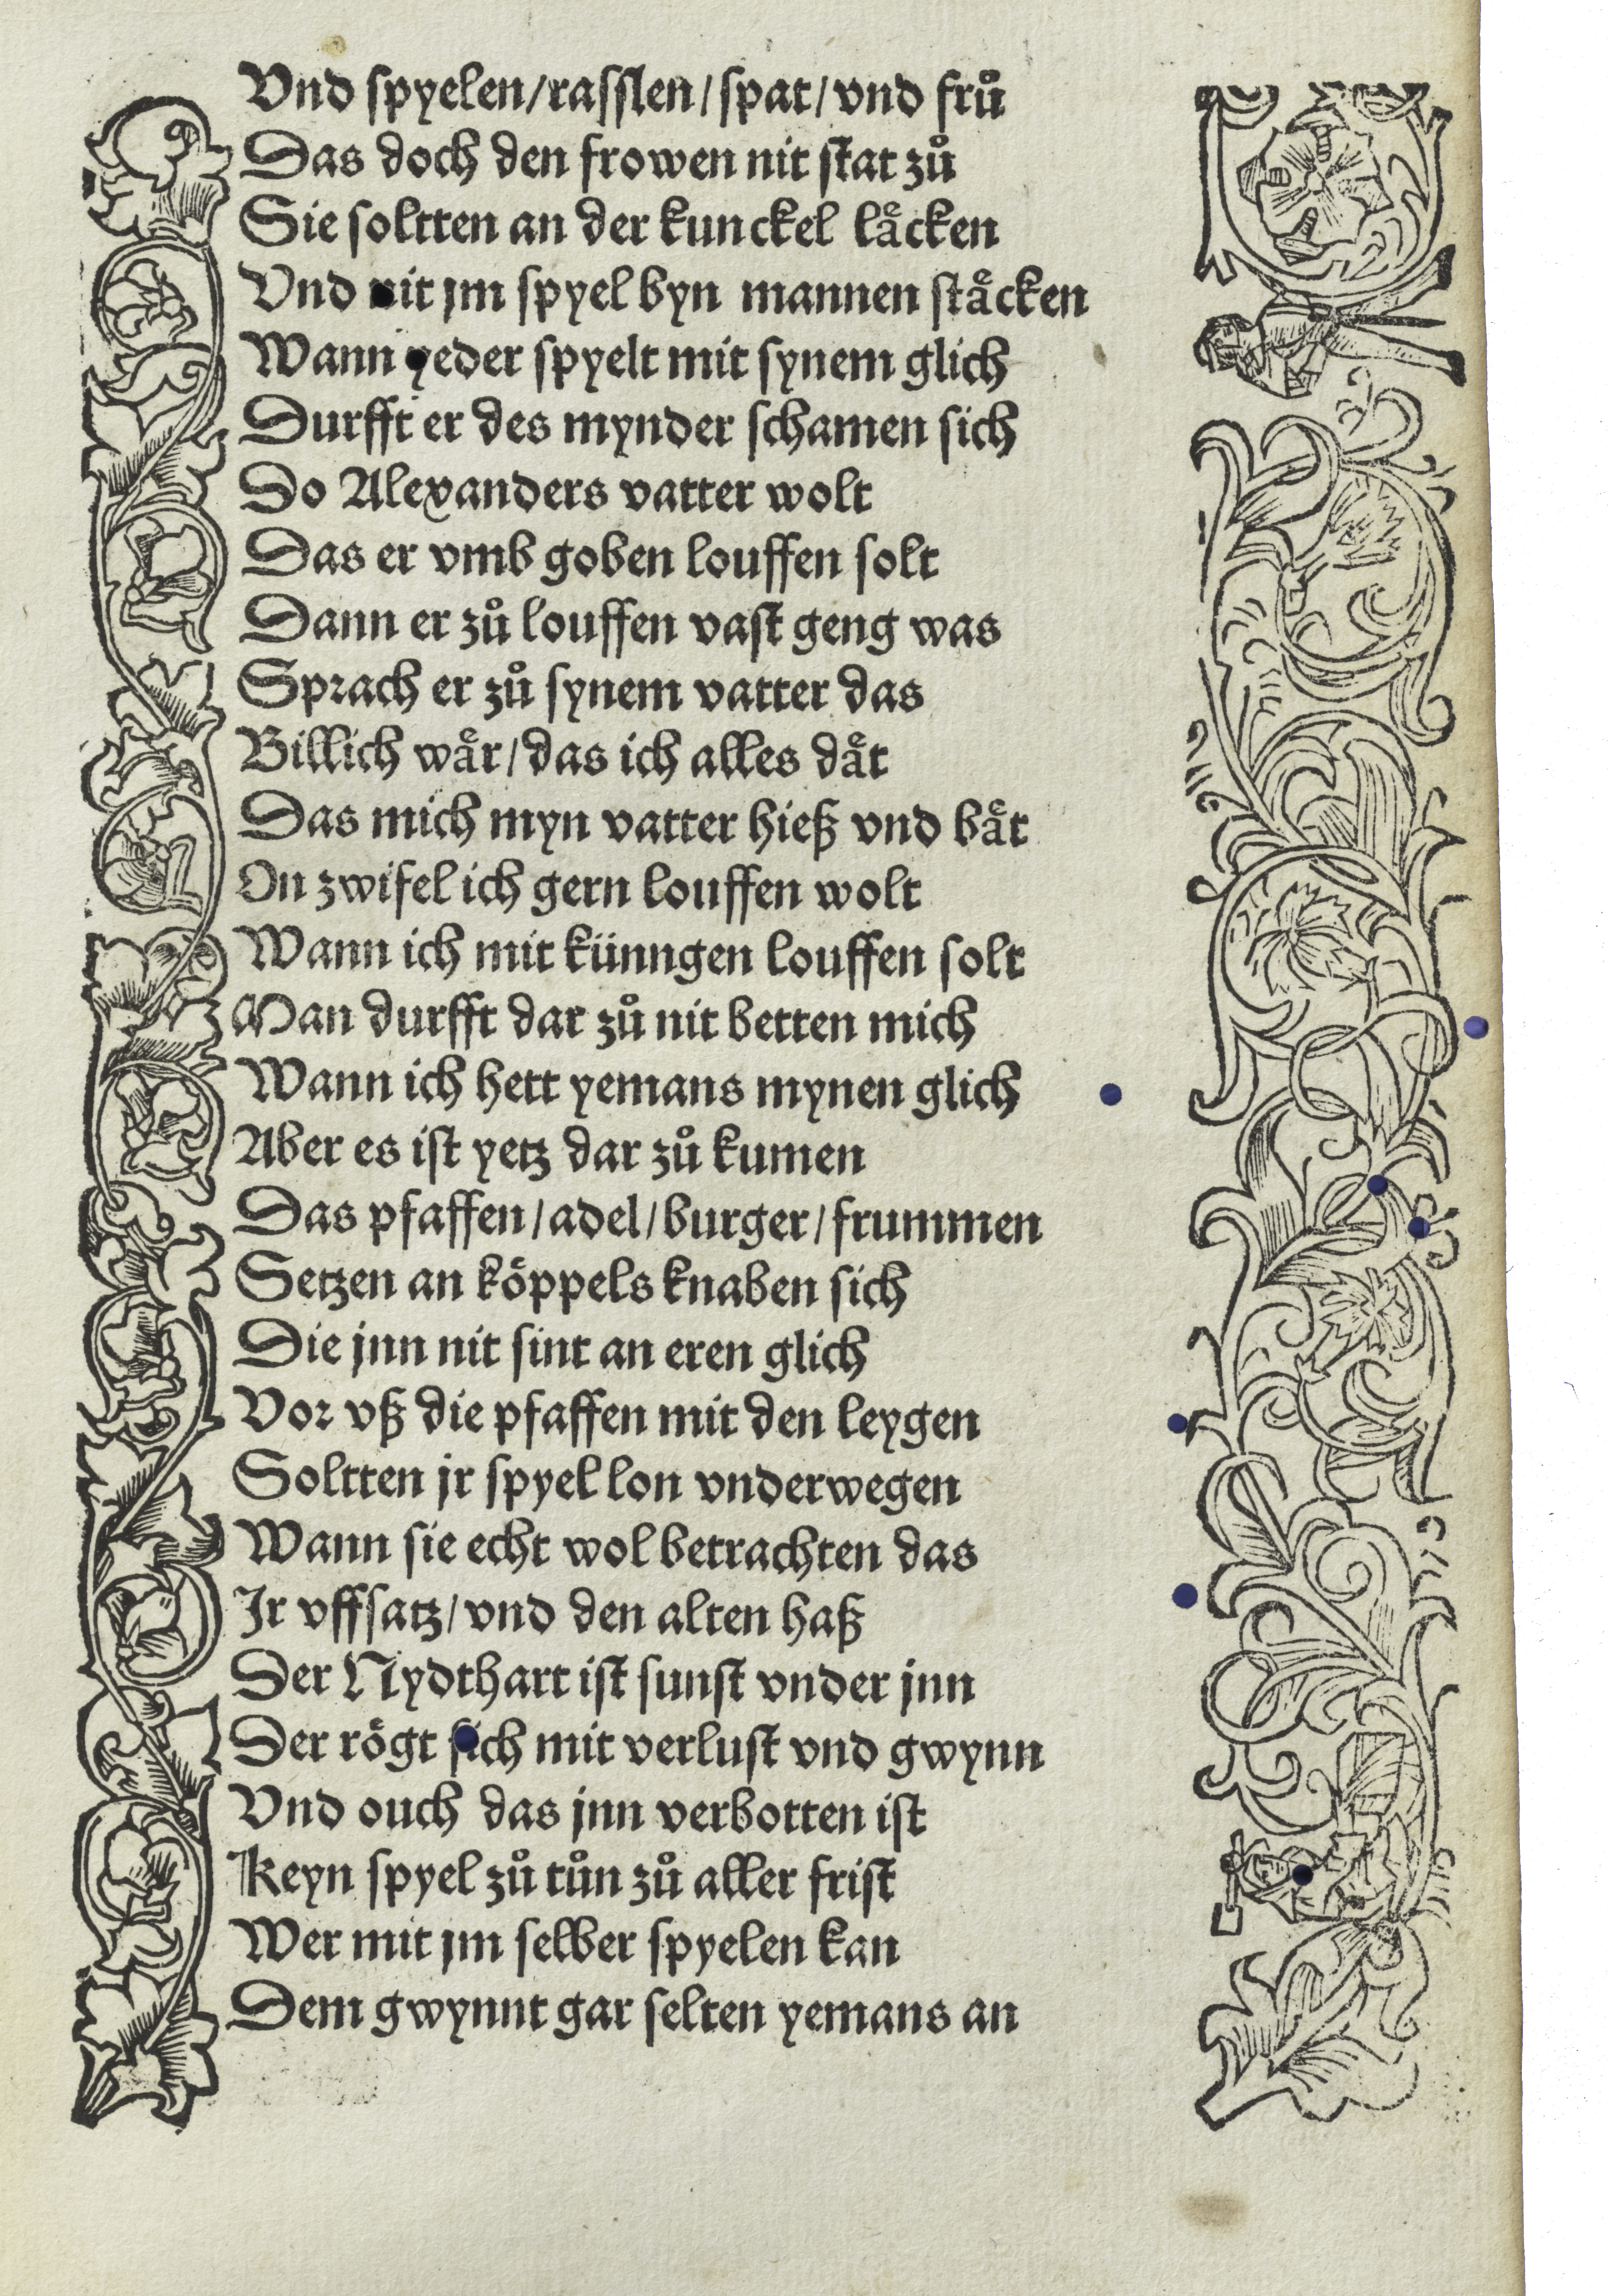 Vnd spyelen/rasslen/spat/vnd fruͦ
Das doch den frowen nit stat zuͦ
Sie soltten an der kunckel laͤcken
Vnd nit jm spyel byn mannen staͤcken
Wann yeder spyelt mit synem glich
Durfft er des mynder schamen sich
Do Alexanders vatter wolt
Das er vmb goben louffen solt
Dann er zuͦ louffen vast geng was
Sprach er zuͦ synem vatter das
Billich waͤr/das ich alles daͤt
Das mich myn vatter hieß vnd baͤt
On zwifel ich gern louffen wolt
Wann ich mit künngen louffen solt
Man durfft dar zuͦ nit betten mich
Wann ich hett yemans mynen glich
Aber es ist yetz dar zuͦ kumen
Das pfaffen/adel/burger/frummen
Setzen an koͤppels knaben sich
Die jnn nit sint an eren glich
Vor vß die pfaffen mit den leygen
Soltten jr spyel lon vnderwegen
Wann sie echt wol betrachten das
Ir vffsatz/vnd den alten haß
Der Nydthart ist sunst vnder jnn
Der roͤgt sich mit verlust vnd gwynn
Vnd ouch das jnn verbotten ist
Keyn spyel zuͦ tuͦn zuͦ aller frist
Wer mit jm selber spyelen kan
Dem gwynnt gar selten yemans an